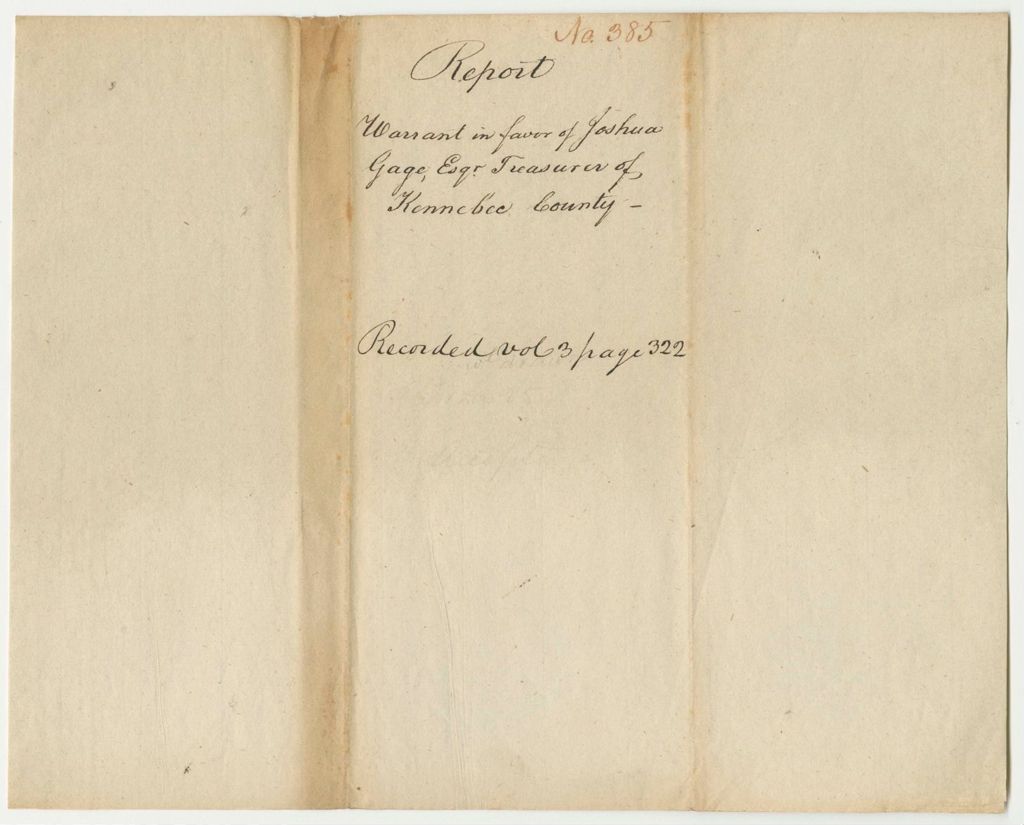 No. 385
Report
Warrant in favor of Joshua
Gage, Esqr Treasurer of
Kennebec County -
Recorded vol 3 page 322